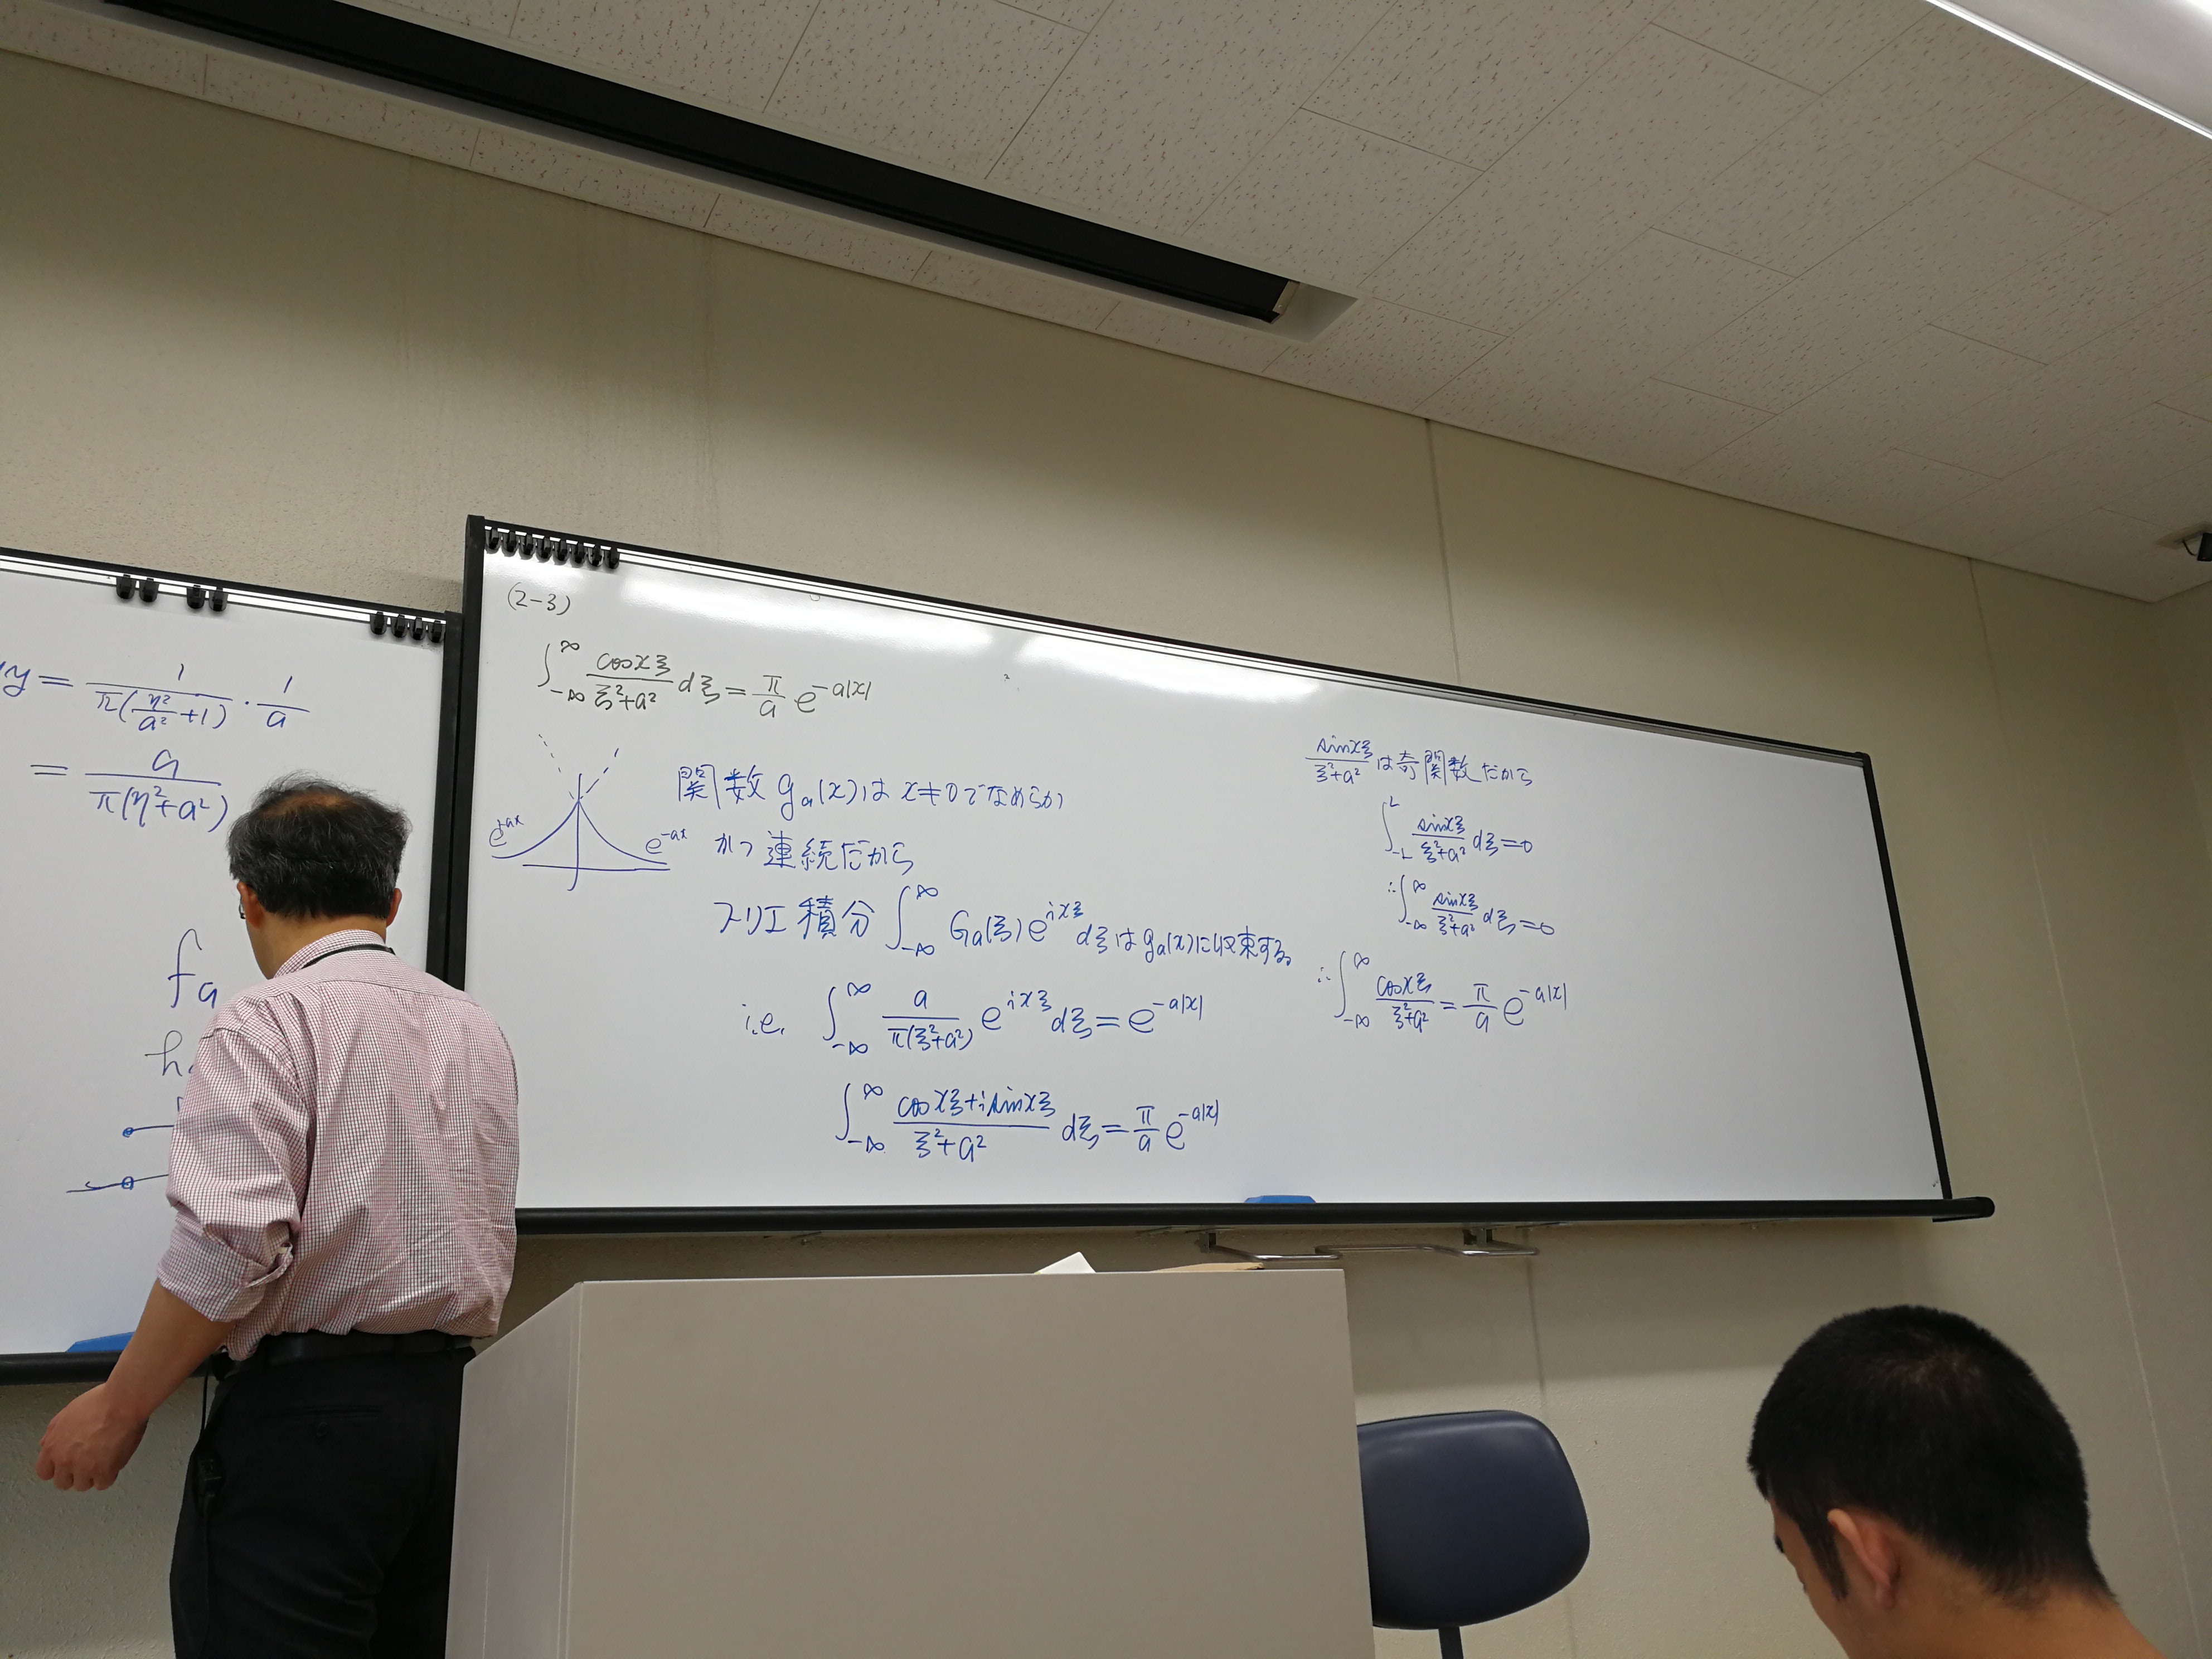 y = 1/(π(η²/a²+1)) · 1/a
= a/(π(η²+a²))
fa
(2-3)
∫_{-∞}^{∞} cosxξ/(ξ²+a²) dξ = π/a e^{-a|x|}
e^{+ax}
e^{-ax}
関数 ga(x)は x≠0でなめらか
かつ連続だから
フリエ積分 ∫_{-∞}^{∞} Ga(ξ)e^{ixξ}dξは ga(x)に収束する。
i.e. ∫_{-∞}^{∞} a/(π(ξ²+a²)) e^{ixξ}dξ = e^{-a|x|}
∫_{-∞}^{∞} (cosxξ+isinxξ)/(ξ²+a²) dξ = π/a e^{-a|x|}
sinxξ/(ξ²+a²) は奇関数だから
∫_{-L}^{L} sinxξ/(ξ²+a²) dξ=0
∴∫_{-∞}^{∞} sinxξ/(ξ²+a²) dξ=0
∴∫_{-∞}^{∞} cosxξ/(ξ²+a²) = π/a e^{-a|x|}